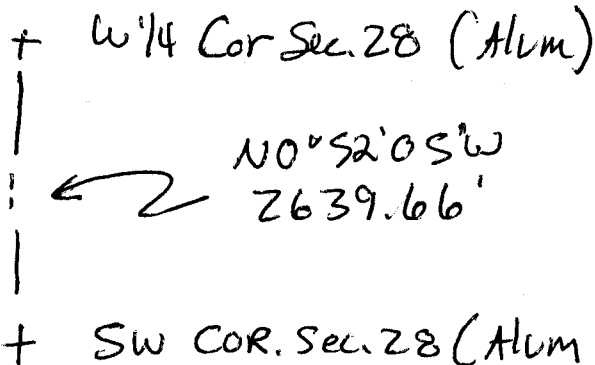 W 1/4 Cor Sec. 28 (Alum)
N0°52'05"W
2639.66'
SW COR. Sec. 28 (Alum